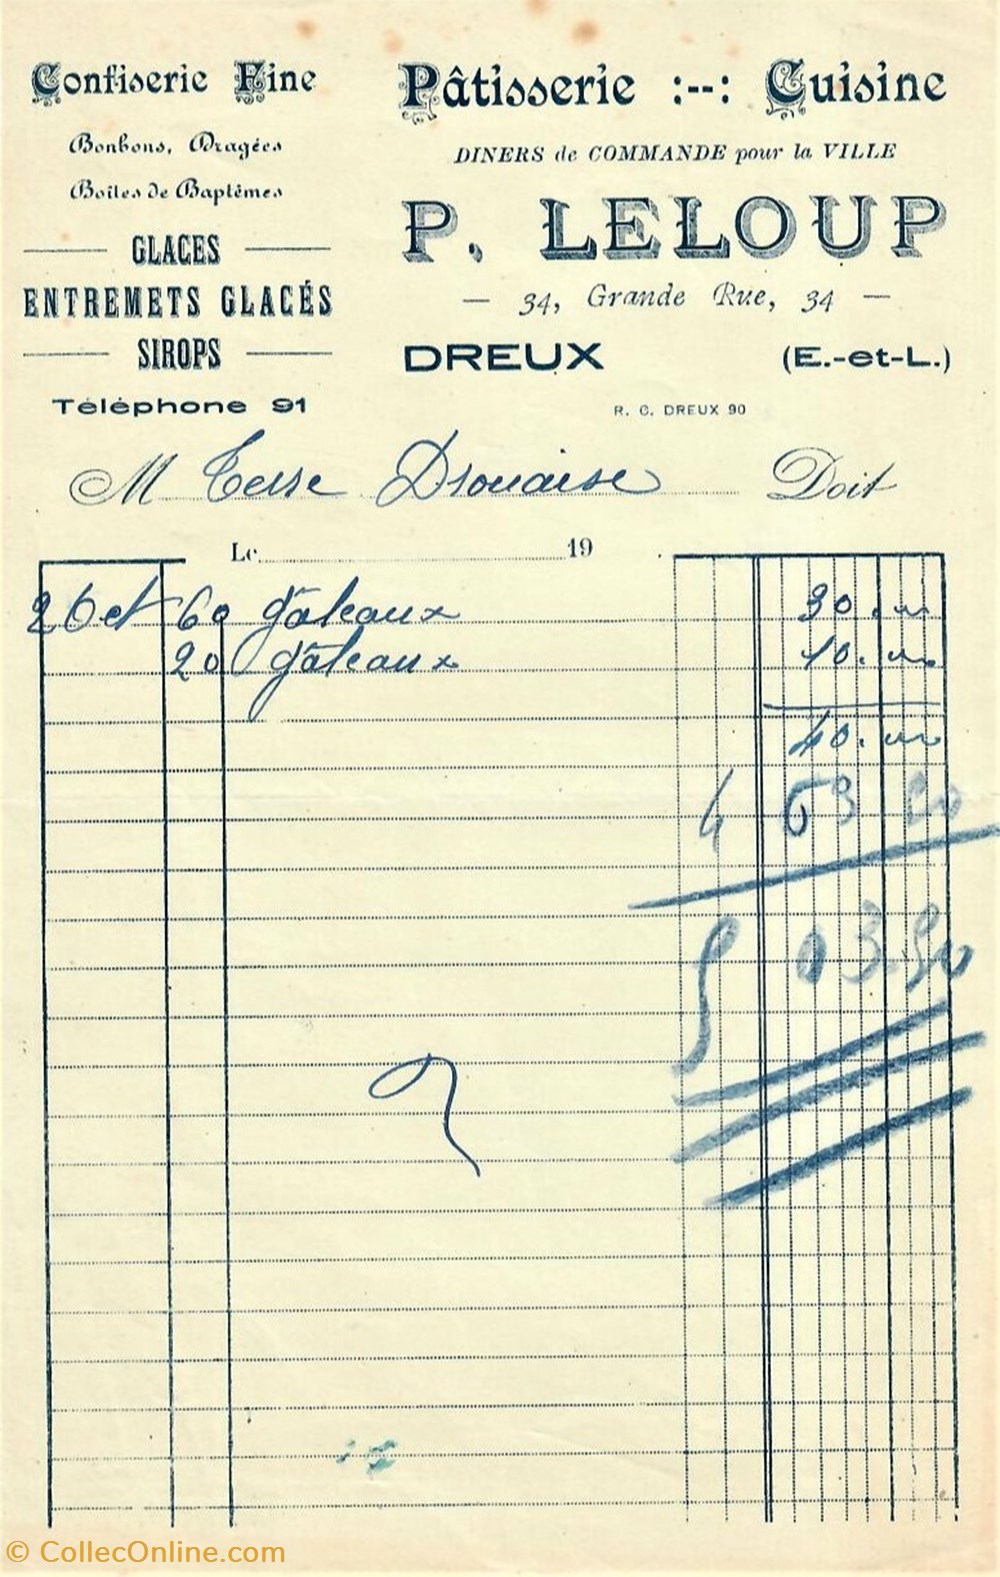 Confiserie Fine
Bonbons, Dragées
Boîtes de Baptêmes
GLACES
ENTREMETS GLACÉS
SIROPS
Téléphone 91
Pâtisserie :--: Cuisine
DINERS de COMMANDE pour la VILLE
P. LELOUP
— 34, Grande Rue, 34 —
DREUX (E.-et-L.)
R. C. DREUX 90
M Terre Drouaise Doit
Le 19
26 oct 60 gâteaux 30.
20 gâteaux 10.
40.
4 63
5 03.50
© CollecOnline.com